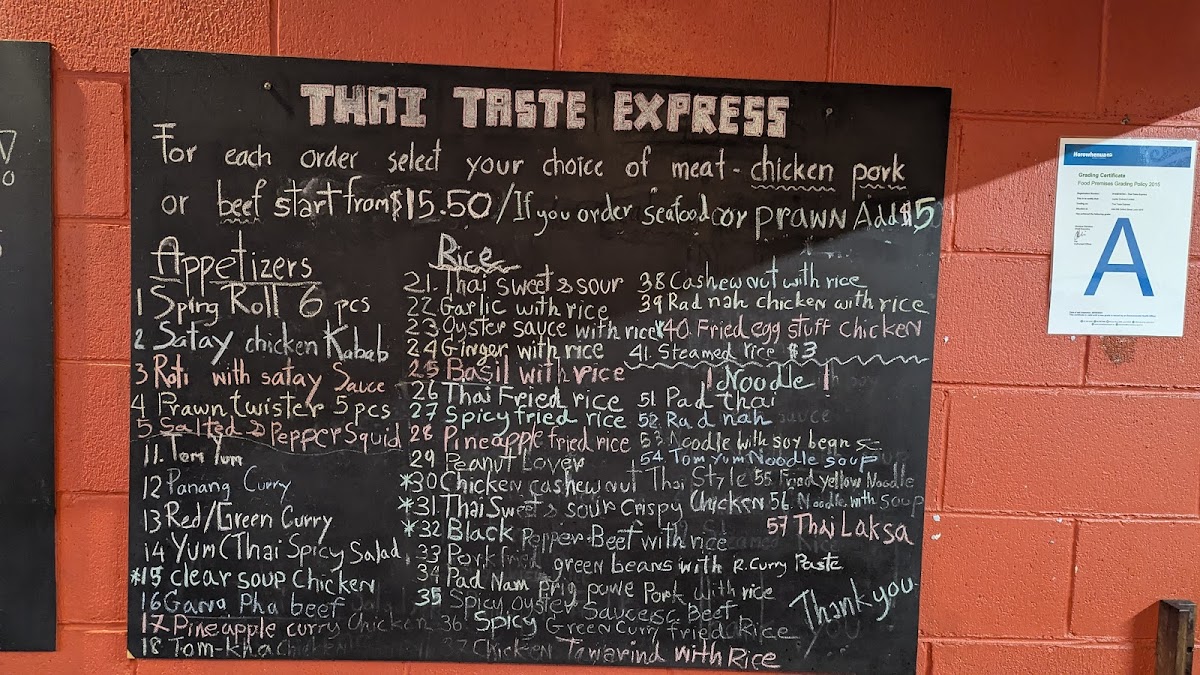 THAI TASTE EXPRESS
For each order select your choice of meat - chicken pork
or beef start from $15.50 / If you order seafood or prawn Add $5
Appetizers
1 Sping Roll 6 pcs
2 Satay chicken Kabab
3 Roti with satay Sauce
4 Prawn twister 5 pcs
5 Salted & Pepper Squid
11. Tom Yum
12 Panang Curry
13 Red/Green Curry
14 Yum (Thai Spicy Salad
*15 clear soup Chicken
16 Gang Pha beef
17 Pineapple curry Chicken
18 Tom-kha Chicken
Rice
21. Thai sweet & sour
22 Garlic with rice
23 Oyster sauce with rice
24 Ginger with rice
25 Basil with rice
26 Thai Fried rice
27 Spicy fried rice
28 Pineapple fried rice
29 Peanut Lover
*30 Chicken cashew nut Thai Style
*31 Thai Sweet & sour Crispy Chicken
*32 Black Pepper Beef with rice
33 Pork fried green beans with R.Curry Paste
34 Pad Nam prig powe Pork with rice
35 Spicy Oyster Sauce Beef
36 Spicy Green Curry fried Rice
37 Chicken Tamarind with Rice
38 Cashew nut with rice
39 Rad nah chicken with rice
*40 Fried egg stuff chicken
41. Steamed rice $3
! Noodle !
51 Pad thai
52 Rad nah
53 Noodle with soy bean
54 Tom Yum Noodle soup
55 Fried yellow Noodle
56 Noodle with soup
57 Thai Laksa
Thank you
Horowhenua
Grading Certificate
Food Premises Grading Policy 2015
A